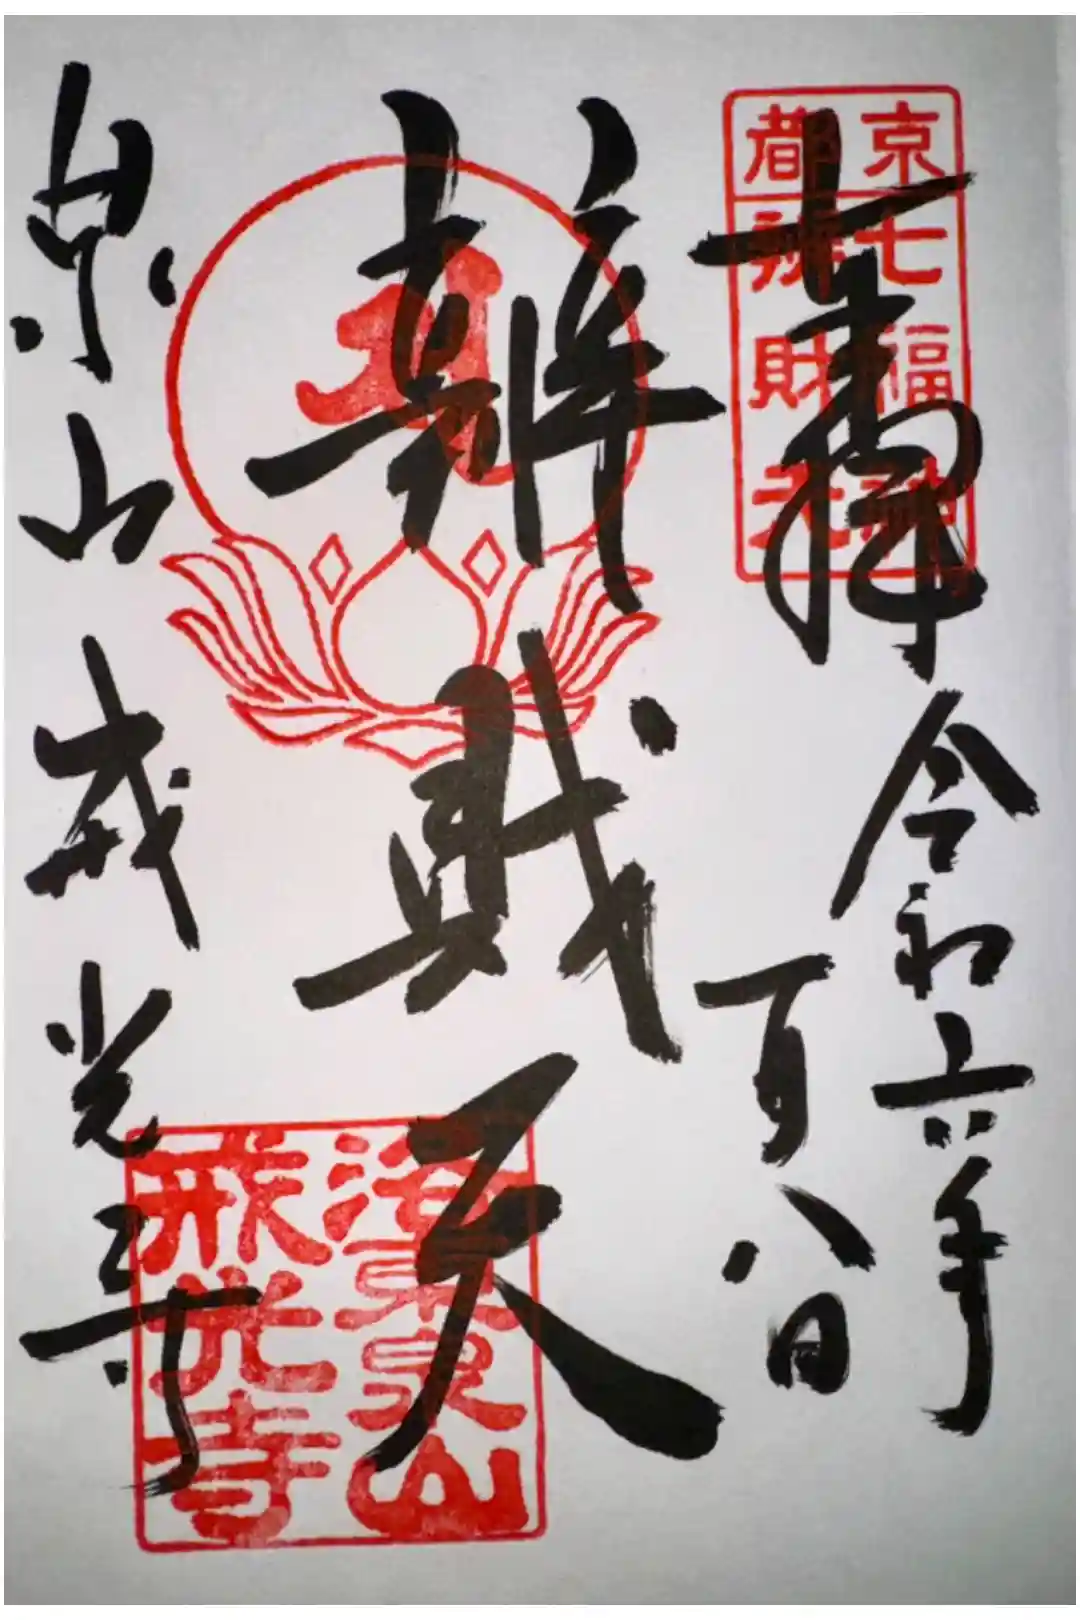 京都
七福神
辨財天
奉拝
令和六年
一月八日
辨財天
泉山 戒光寺
洛東泉山
戒光寺